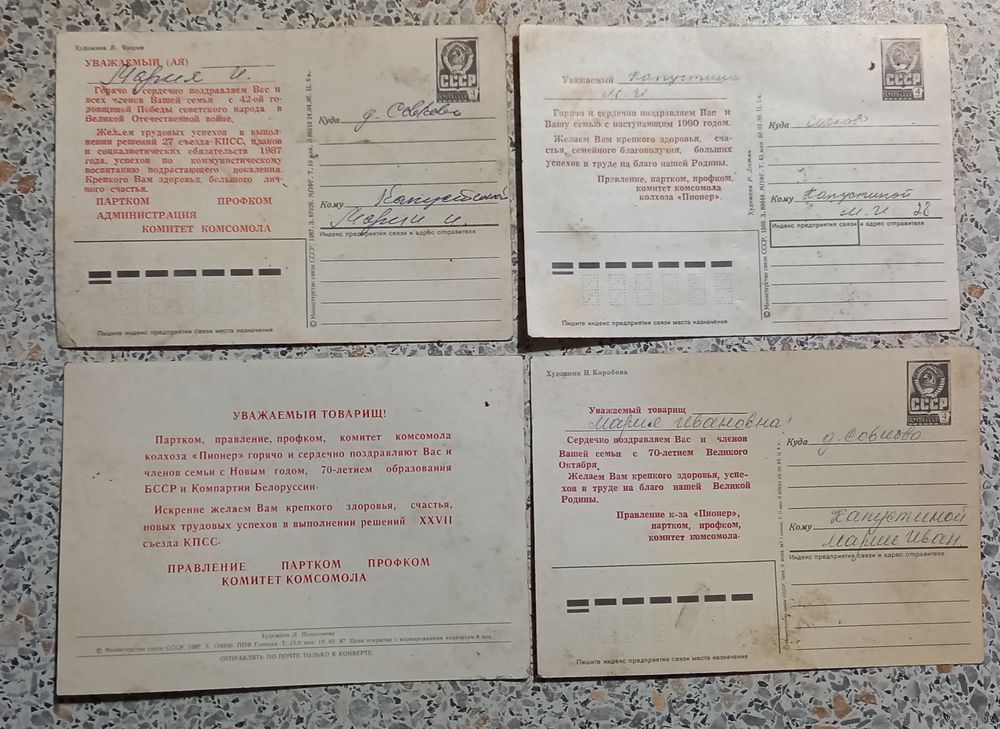 Художник Л.
УВАЖАЕМЫЙ (АЯ)
Мария И.
Горячо и сердечно поздравляем Вас и
всех членов Вашей семьи с 42-ой го-
довщиной Победы советского народа в
Великой Отечественной войне.
Желаем трудовых успехов в выпол-
нении решений 27 съезда КПСС, планов
и социалистических обязательств 1987
года, успехов по коммунистическому
воспитанию подрастающего поколения.
Крепкого Вам здоровья, большого лич-
ного счастья.
ПАРТКОМ ПРОФКОМ
АДМИНИСТРАЦИЯ
КОМИТЕТ КОМСОМОЛА
Пишите индекс предприятия связи места назначения
© Министерство связи СССР, 1987
СССР
Куда д. Совково
Кому Капустиной
Марии И.
Индекс предприятия связи и адрес отправителя
Уважаемый Капустина
М. И.
Горячо и сердечно поздравляем Вас и
Вашу семью с наступающим 1990 годом.
Желаем Вам крепкого здоровья, сча-
стья, семейного благополучия, больших
успехов в труде на благо нашей Родины.
Правление, партком, профком,
комитет комсомола
колхоза «Пионер».
Пишите индекс предприятия связи места назначения
© Министерство связи СССР,
Художник Р.
СССР
Куда Совково
Кому Капустиной
М. И. 28
Индекс предприятия связи и адрес отправителя
УВАЖАЕМЫЙ ТОВАРИЩ!
Партком, правление, профком, комитет комсомола
колхоза «Пионер» горячо и сердечно поздравляют Вас и
членов семьи с Новым годом, 70-летием образования
БССР и Компартии Белоруссии.
Искренне желаем Вам крепкого здоровья, счастья,
новых трудовых успехов в выполнении решений XXVII
съезда КПСС.
ПРАВЛЕНИЕ ПАРТКОМ ПРОФКОМ
КОМИТЕТ КОМСОМОЛА
Художник Л.
© Министерство связи СССР, 1987 З. ППФ Гознака. Т. 15,0 млн 19. 01. 87. Цена открытки с маркированным конвертом 8 коп.
ОТПРАВЛЯТЬ ПО ПОЧТЕ ТОЛЬКО В КОНВЕРТЕ
Художник Н. Коробова
Уважаемый товарищ
Мария Ивановна!
Сердечно поздравляем Вас и членов
Вашей семьи с 70-летием Великого
Октября.
Желаем Вам крепкого здоровья, успе-
хов в труде на благо нашей Великой
Родины.
Правление к-за «Пионер»,
партком, профком,
комитет комсомола.
Пишите индекс предприятия связи места назначения
СССР
Куда д. Совково
Кому Капустиной
Марии Иван
Индекс предприятия связи и адрес отправителя